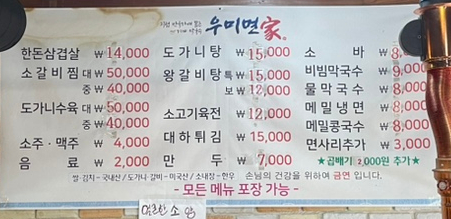 우미면家
한돈삼겹살 ₩14,000
소갈비찜 대 ₩50,000
중 ₩40,000
도가니수육 대 ₩50,000
중 ₩40,000
소주·맥주 ₩4,000
음료 ₩2,000
도가니탕 ₩15,000
왕갈비탕 특 ₩15,000
보 ₩12,000
소고기육전 ₩12,000
대하튀김 ₩15,000
만두 ₩7,000
소바 ₩8,
비빔막국수 ₩9,000
물막국수 ₩8,000
메밀냉면 ₩8,000
메밀콩국수 ₩8,000
면사리추가 ₩3,000
★곱빼기 2,000원 추가★
쌀·김치-국내산 / 도가니 갈비-미국산 / 소내장-한우 손님의 건강을 위하여 금연 입니다.
- 모든 메뉴 포장 가능 -